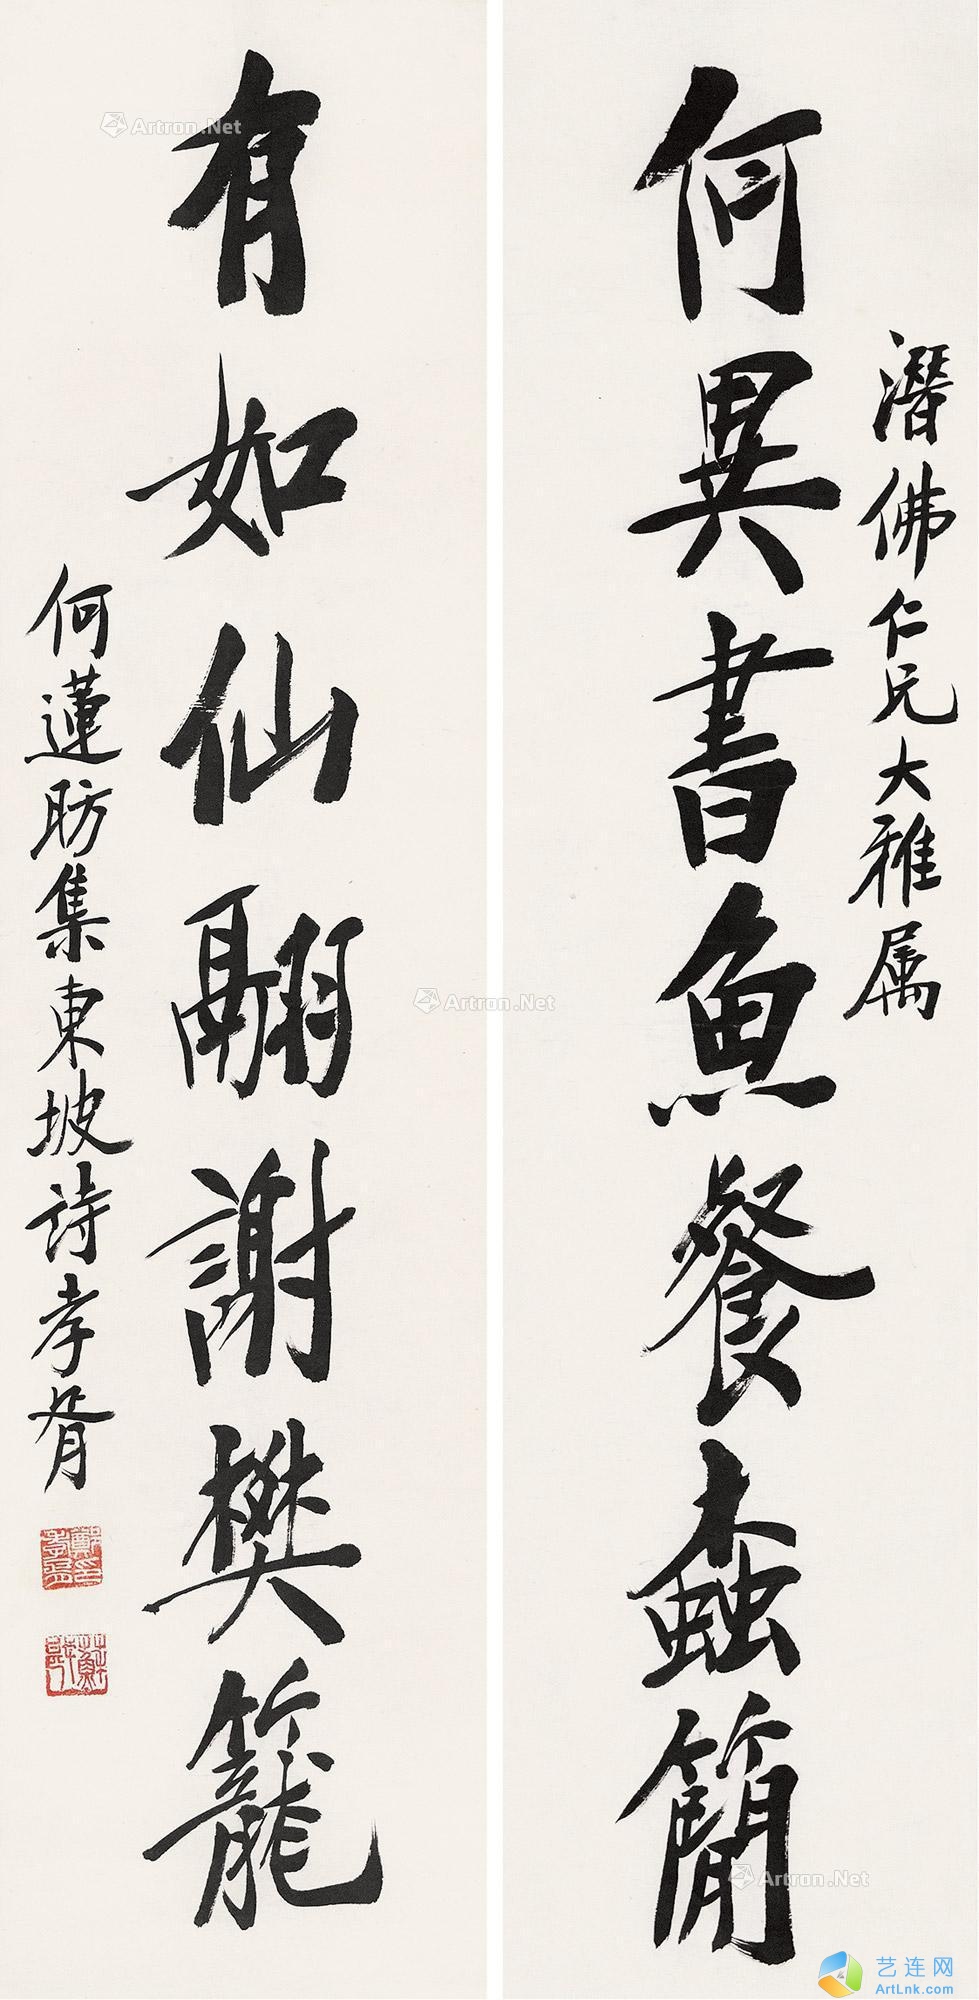 潛佛仁兄大雅属
何異書魚餐螙簡
有如仙翮謝樊籠
何蓮昉集東坡詩孝胥
鄭孝胥印
Artron.Net
Artron.Net
Artron.Net
艺连网
ArtLnk.com